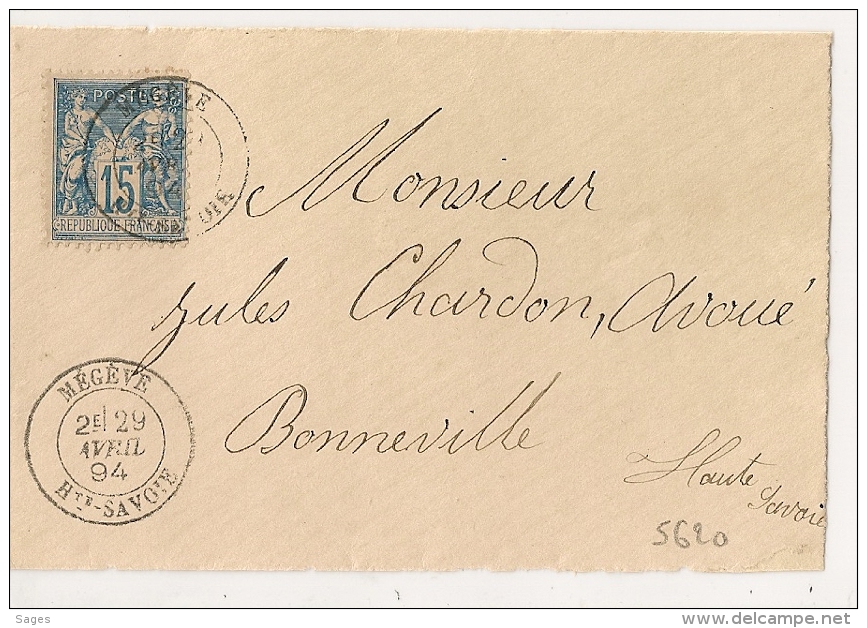 POSTES
15
REPUBLIQUE FRANÇAISE
MEGÈVE
Monsieur
Jules Chardon, Avoué
Bonneville
Haute
Savoie
MEGÈVE
2E 29
AVRIL
94
HTE-SAVOIE
5620
Sages
delcampe.net